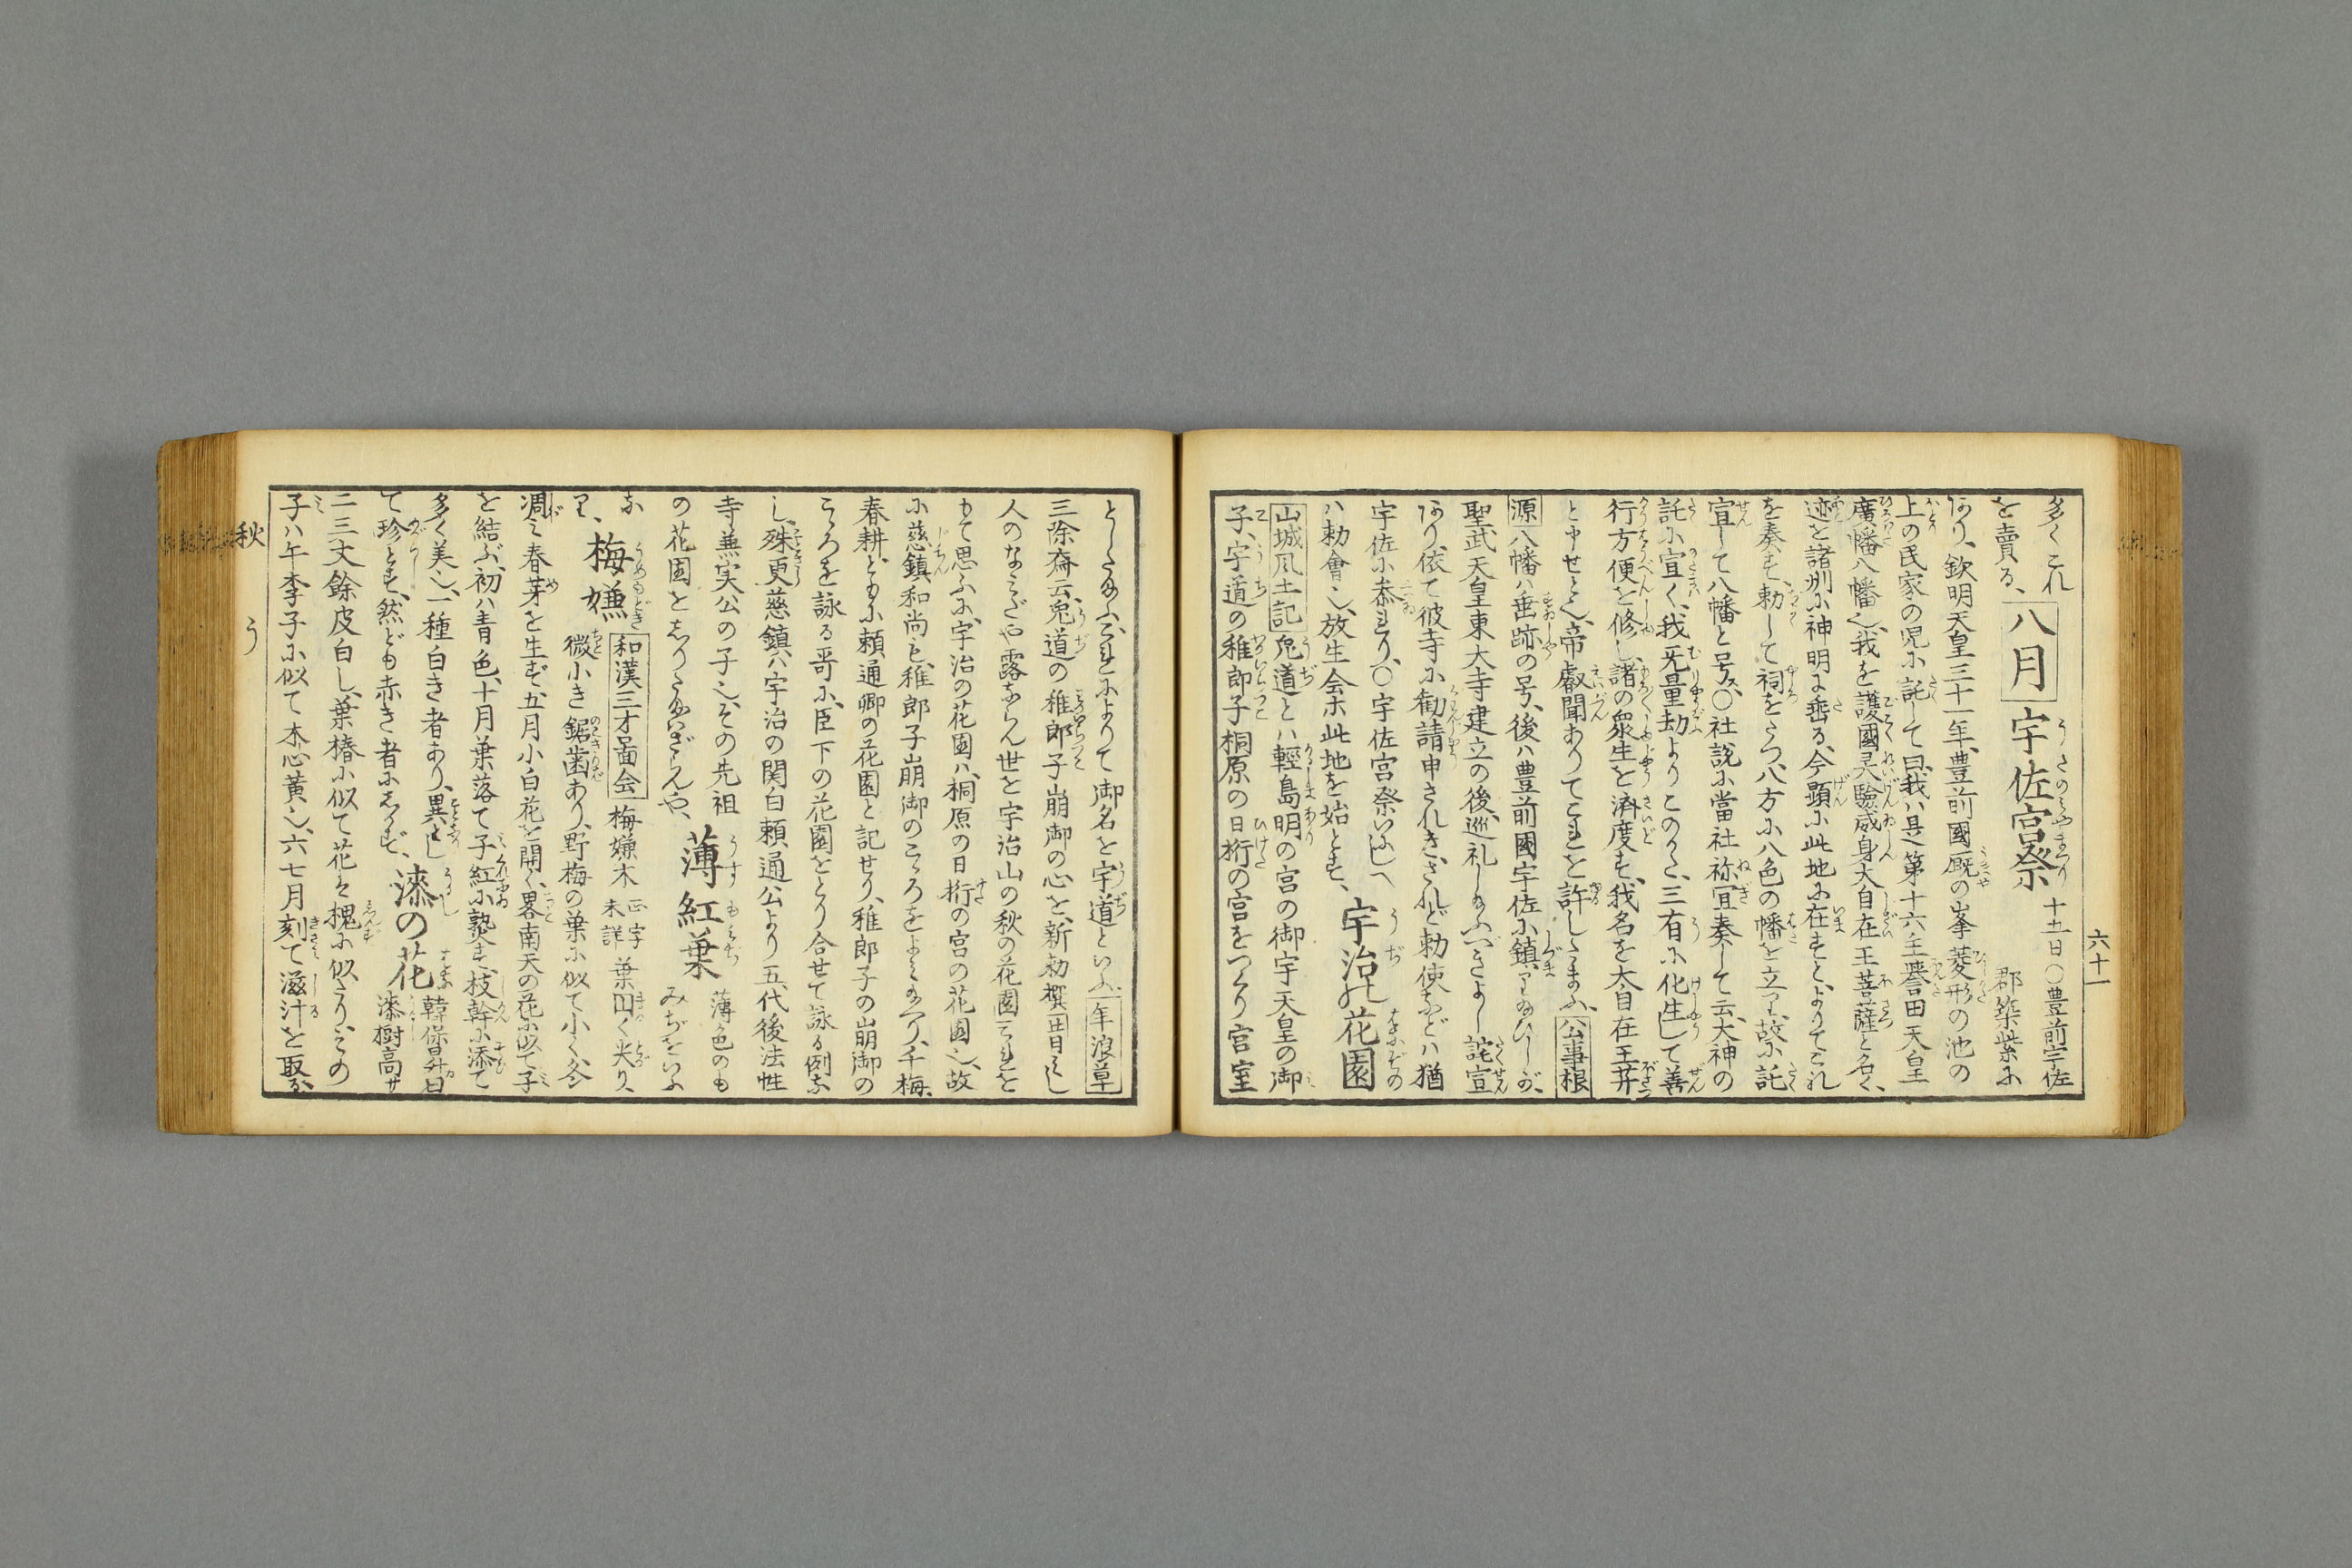 六十一
多くこれ
を賣る、八月 宇佐宮祭 十五日〇豊前宇佐郡筑紫に
あり、欽明天皇三十一年、豊前國厩の峯菱形の池の
上の民家の児に託して曰、我ハ是第十六王誉田天皇
廣幡八幡也、我を護國灵驗威身大自在王菩薩と名く、
迹を諸刕に神明に垂る、今顕に此地に在すと、よりてこれ
を奏す、勅して祠をたつ、八方に八色の幡を立つ、故に託
宣して八幡と号ス、〇社説に當社祢宜奏して云、大神の
託に宣く、我无量劫よりこのかた、三有に化生して善
行方便を修し、諸の衆生を済度す、我名を大自在王菩薩
と申せと也、帝叡聞ありてこれを許したまふ、公事根
源 八幡ハ垂跡の号、後ハ豊前國宇佐に鎮りゐひしが、
聖武天皇東大寺建立の後、巡礼し給ふべきよし託宣
あり、依て彼寺に勧請申されき、されど勅使などハ猶
宇佐に恭まゐり、〇宇佐宮祭いにしへ
ハ勅會也、放生会ホ此地を始とす、宇治の花園
山城風土記 兎道とハ輕島明の宮の御宇天皇の御
子、宇道の稚郎子桐原の日桁の宮をつくり宮室
としたまふ、これによりて御名を宇道といふ、年浪草
三除斎云、兎道の稚郎子崩御の心を、新勅撰
人のなミだや露ならん世を宇治山の秋の花園これを
もて思ふに、宇治の花園ハ、桐原の日桁の宮の花園也、故
に慈鎮和尚も、稚郎子崩御のこゝろをよミ給へり、千梅、
春耕ともに頼通卿の花園と記せり、稚郎子の崩御の
こゝろを詠る哥に、臣下の花園をとり合せて詠る例な
し、殊更慈鎮ハ宇治の関白頼通公より五代後法性
寺兼実公の子也、その先祖
の花園をしりたまハざらんや、薄紅葉 薄色のもみぢをいふ
な
り、梅嫌 和漢三才圖会 梅嫌木 正字未詳 葉円く尖り、
微小き鋸歯あり、野梅の葉に似て小く、冬
凋ミ春芽を生ず、五月小白花を開く、畧南天の花に似て子
を結ぶ、初ハ青色、十月葉落て子紅に熟す、枝幹に添て
多く美也、一種白き者あり、異とし
て珍とす、然ども赤き者にしかず、漆の花 韓保昇曰漆樹高サ
二三丈餘皮白し、葉椿に似て花を槐に似たり、その
子ハ午李子に似て木心黄也、六七月刻て滋汁を取る、
秋 う